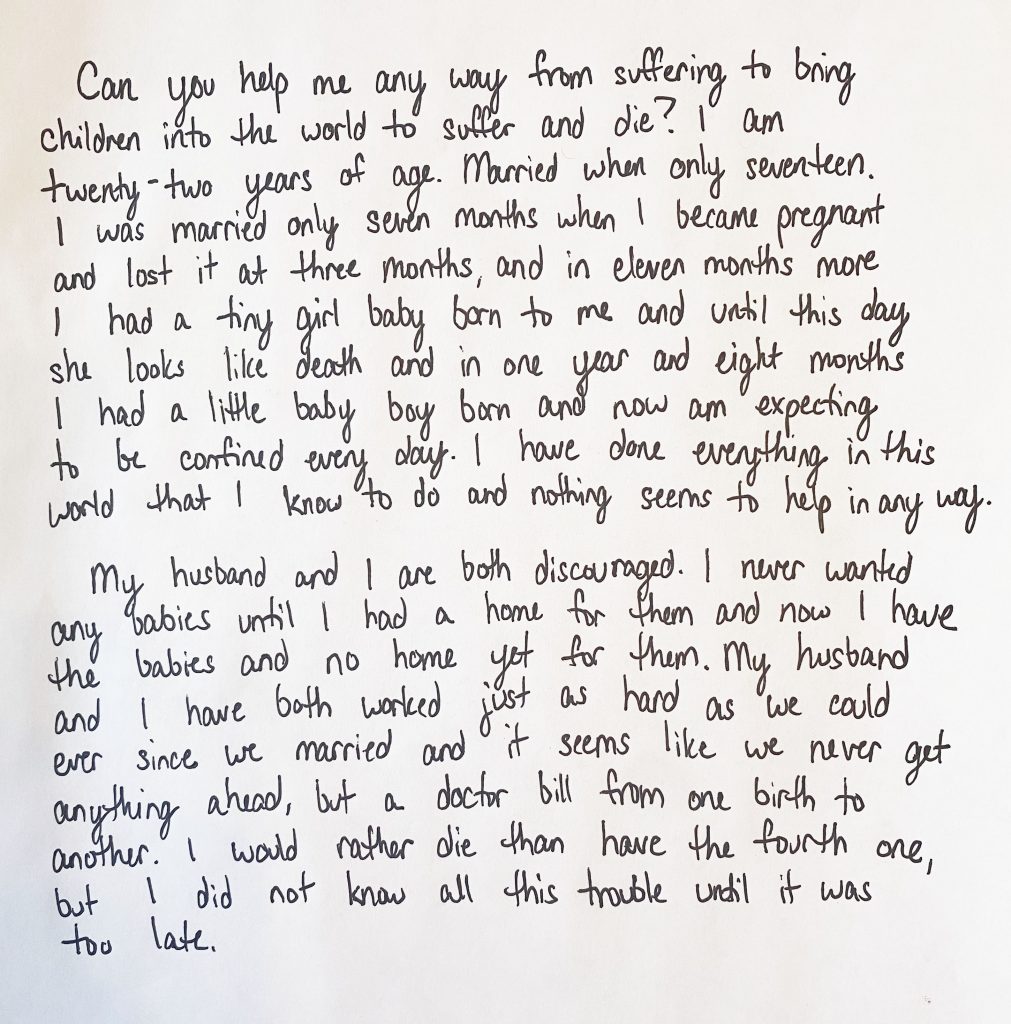 Can you help me any way from suffering to bring
children into the world to suffer and die? I am
twenty-two years of age. Married when only seventeen.
I was married only seven months when I became pregnant
and lost it at three months, and in eleven months more
I had a tiny girl baby born to me and until this day
she looks like death and in one year and eight months
I had a little baby boy born and now am expecting
to be confined every day. I have done everything in this
world that I know to do and nothing seems to help in any way.
My husband and I are both discouraged. I never wanted
any babies until I had a home for them and now I have
the babies and no home yet for them. My husband
and I have both worked just as hard as we could
ever since we married and it seems like we never get
anything ahead, but a doctor bill from one birth to
another. I would rather die than have the fourth one,
but I did not know all this trouble until it was
too late.